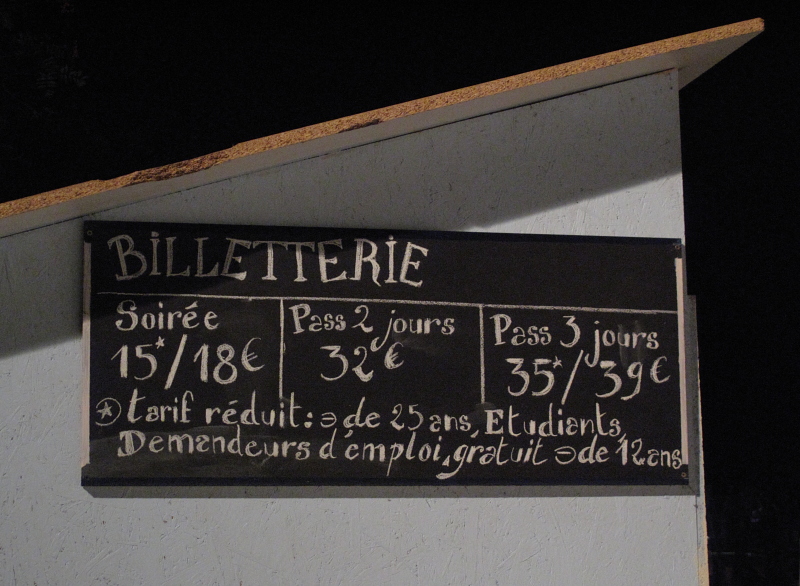 BiLLETTERiE
Soirée
15*/18€
Pass 2 jours
32€
Pass 3 jours
35*/39€
⍟ tarif réduit: ⊖ de 25 ans, Etudiants,
Demandeurs d'emploi, gratuit ⊖ de 12 ans